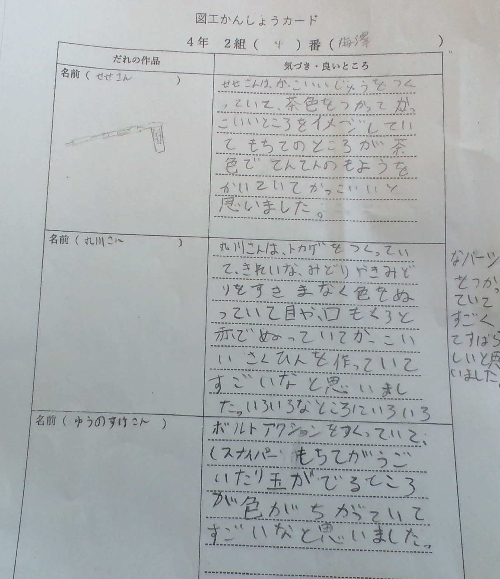 図工かんしょうカード
4年 2組( 4 )番( 海澤 )
だれの作品
気づき・良いところ
名前( せせさん )
せせさんは、かっこいいじゅうをつく
っていて、茶色をつかってか、
こいいところをイメージしてい
て もちてのところが茶
色で てんてんのもようを
かいていてかっこいいと
思いました。
名前( 丸川さん )
丸川さんは、トカゲをつくってい
て、きれいな、みどりやきみど
りをすきまなく色をぬ
っていて目や、口もくろと
赤でぬっていてか、こい
い さくひんを作っていて
すごいなと思いまし
た。いろいろなところにいろいろ
なパーツ
をつか、
ていて
すごく
てすばら
しいと思
いました
名前( ゆうのすけさん )
ボルトアクションをつくっていて、
(スナイパー もちてがうご
いたり玉がでるところ
が色がちがっていて
すごいなと思いました。